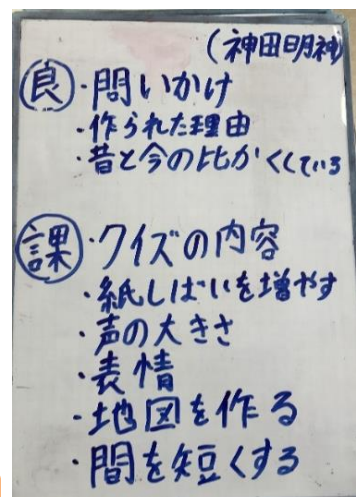 (神田明神)
良・問いかけ
・作られた理由
・昔と今の比かくしている
課・クイズの内容
・紙しばいを増やす
・声の大きさ
・表情
・地図を作る
・間を短くする